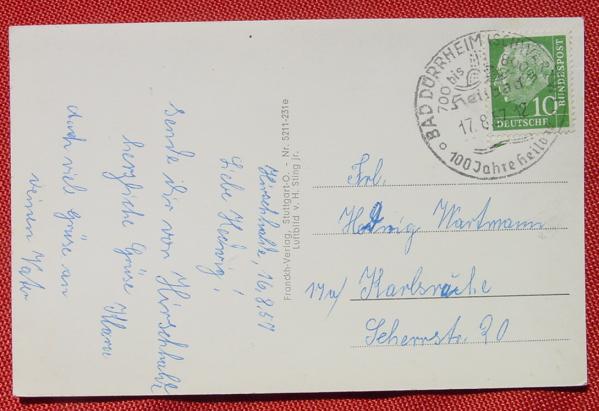 Hirschhalde, 16.8.57
Liebe Hedwig!
Sende dir von Hirschhalde
herzliche Grüse Klara
Auch viel Grüse an
deinen Vater
Franckh-Verlag, Stuttgart-O. - Nr. 5211-231e
Luftbild v. H. Sting jr.
BAD DÜRRHEIM (SCHWARZW
700 bis
Heilbad
17.8.57.-12
100 Jahre Heilb
10
DEUTSCHE
BUNDESPOST
Frl.
Hedwig Wartmann
17a) Karlsruhe
Scherrstr. 20